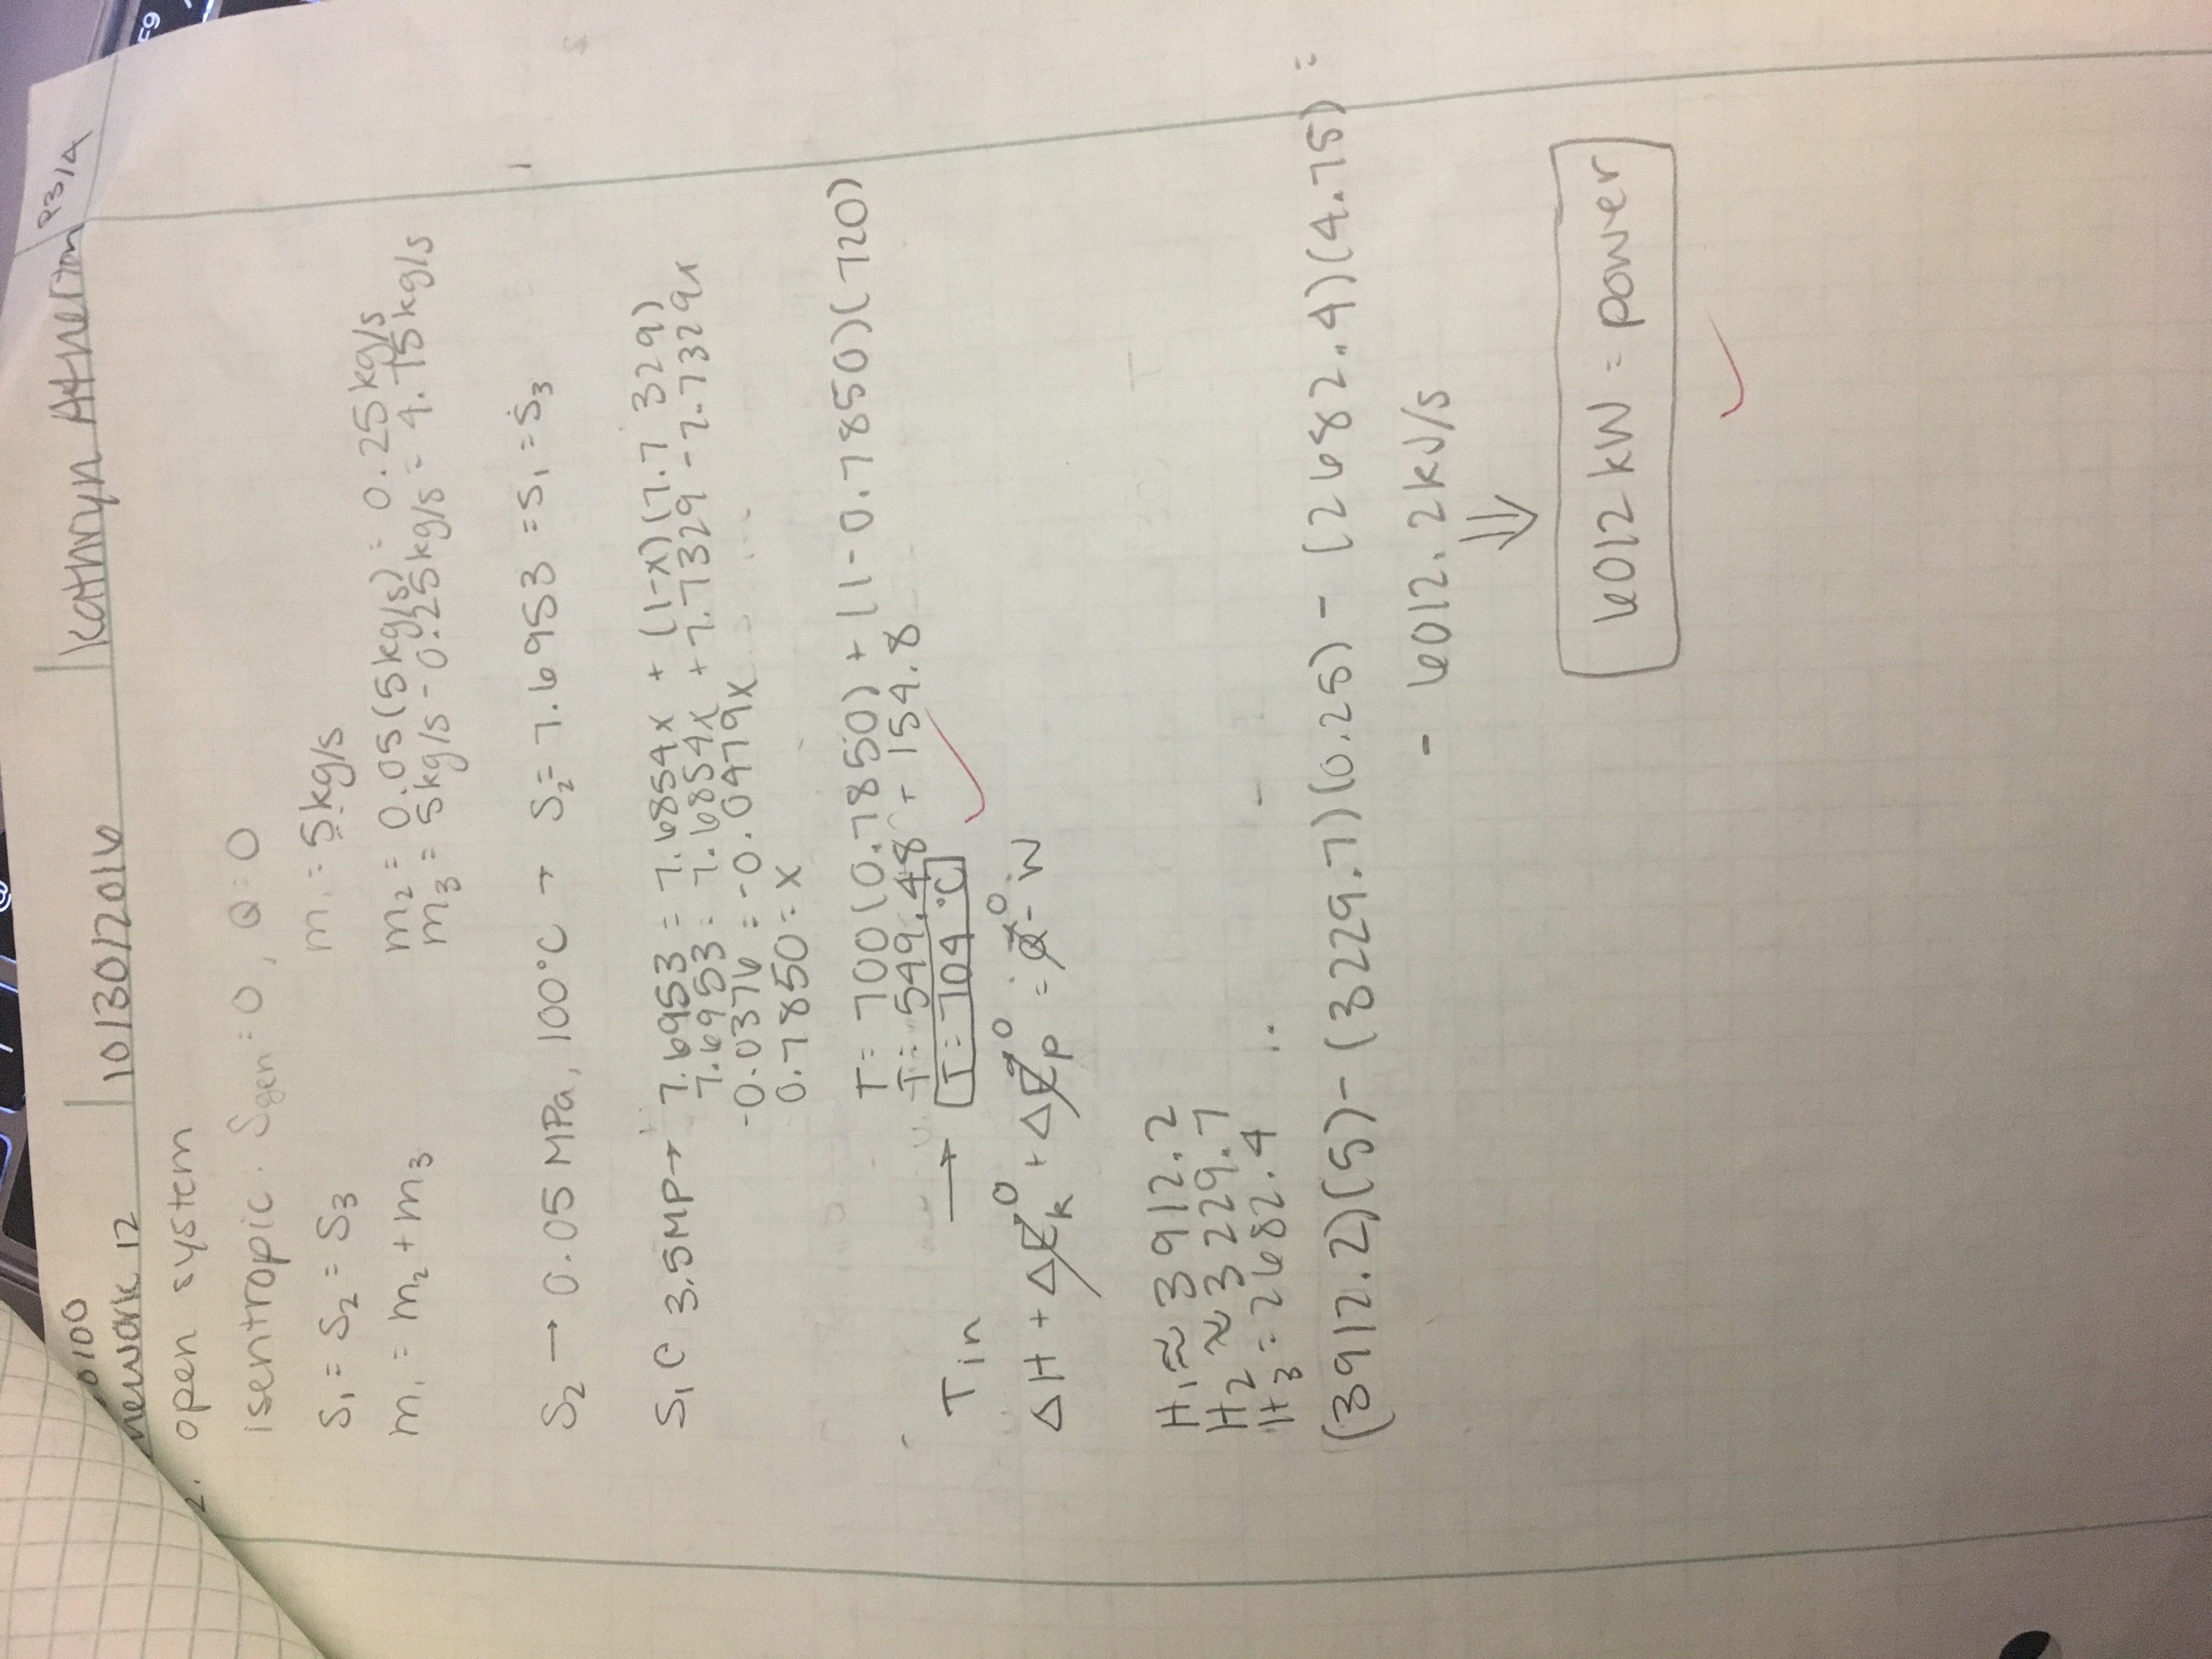 0100
nework 12
10/30/2016
Kathryn Atherton
P3/4
2. open system
isentropic. Sgen = 0, Q = 0
S₁ = S₂ = S₃
m₁ = 5kg/s
m₁ = m₂ + m₃
m₂ = 0.05(5kg/s) = 0.25kg/s
m₃ = 5kg/s - 0.25kg/s = 4.75kg/s
S₂ → 0.05 MPa, 100°C → S₂ = 7.6953 = S₁ = S₃
S₁ @ 3.5MP → 7.6953 = 7.6854x + (1-x)(7.7329)
7.6953 = 7.6854x + 7.7329 - 7.7329x
-0.0376 = -0.0479x
0.7850 = x
T = 700(0.7850) + (1-0.7850)(720)
T = 549.48 + 154.8
Tin → T = 704 °C
ΔH + ΔEk⁰ + ΔEp⁰ = Q⁰ - W
H₁ ≈ 3912.2
H₂ ≈ 3229.7
H₃ = 2682.4
(3912.2)(5) - (3229.7)(0.25) - (2682.4)(4.75) =
- 6012.2kJ/s
⇓
6012 kW = power
F9
@